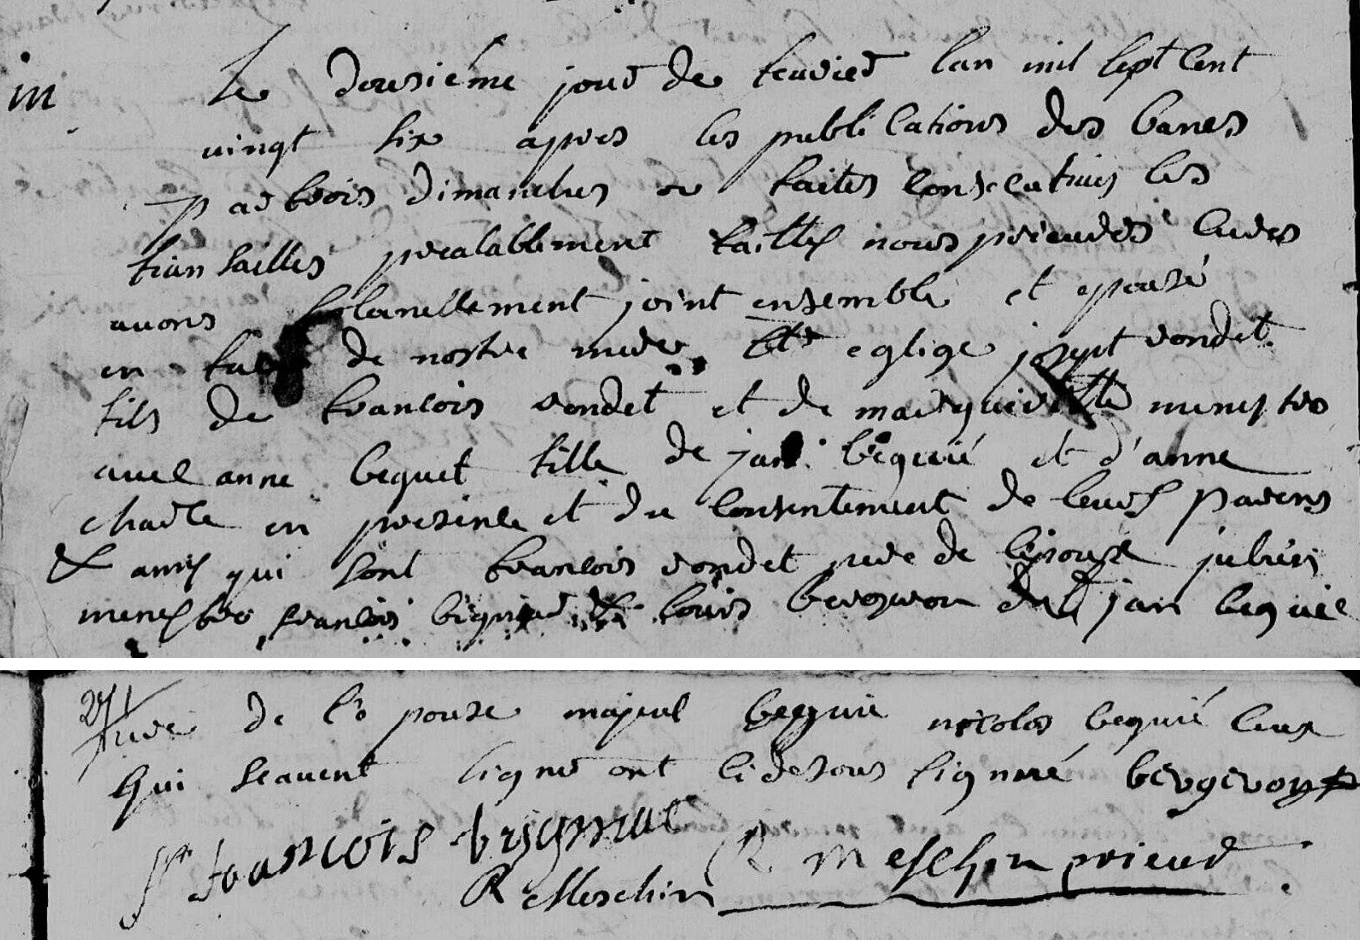 m
Le dousiéme jour de feuvier lan mil sept cent
vingt six apres les publications des banes
par trois dimanches ou faites consecutives les
fiansailles prealablement faittes nous prieur des
avons solanellement joint ensemble et epousé
en face de nostre mere Ste eglige josept vondet
fils de francois vondet et de margueritte menestro
avec anne bequet fille de jan bequié et d'anne
charle en presence et du consentement de leurs parens
& amis qui sont francois vondet pere de lepouse julien
menestro francois brignac & louis bergeron jan bequie
pere de l'epouse bequie nicolas bequié ceux
qui scavent signe ont cidesous signiré bergeron
francois brignac R Meschin prieur
R Meschin